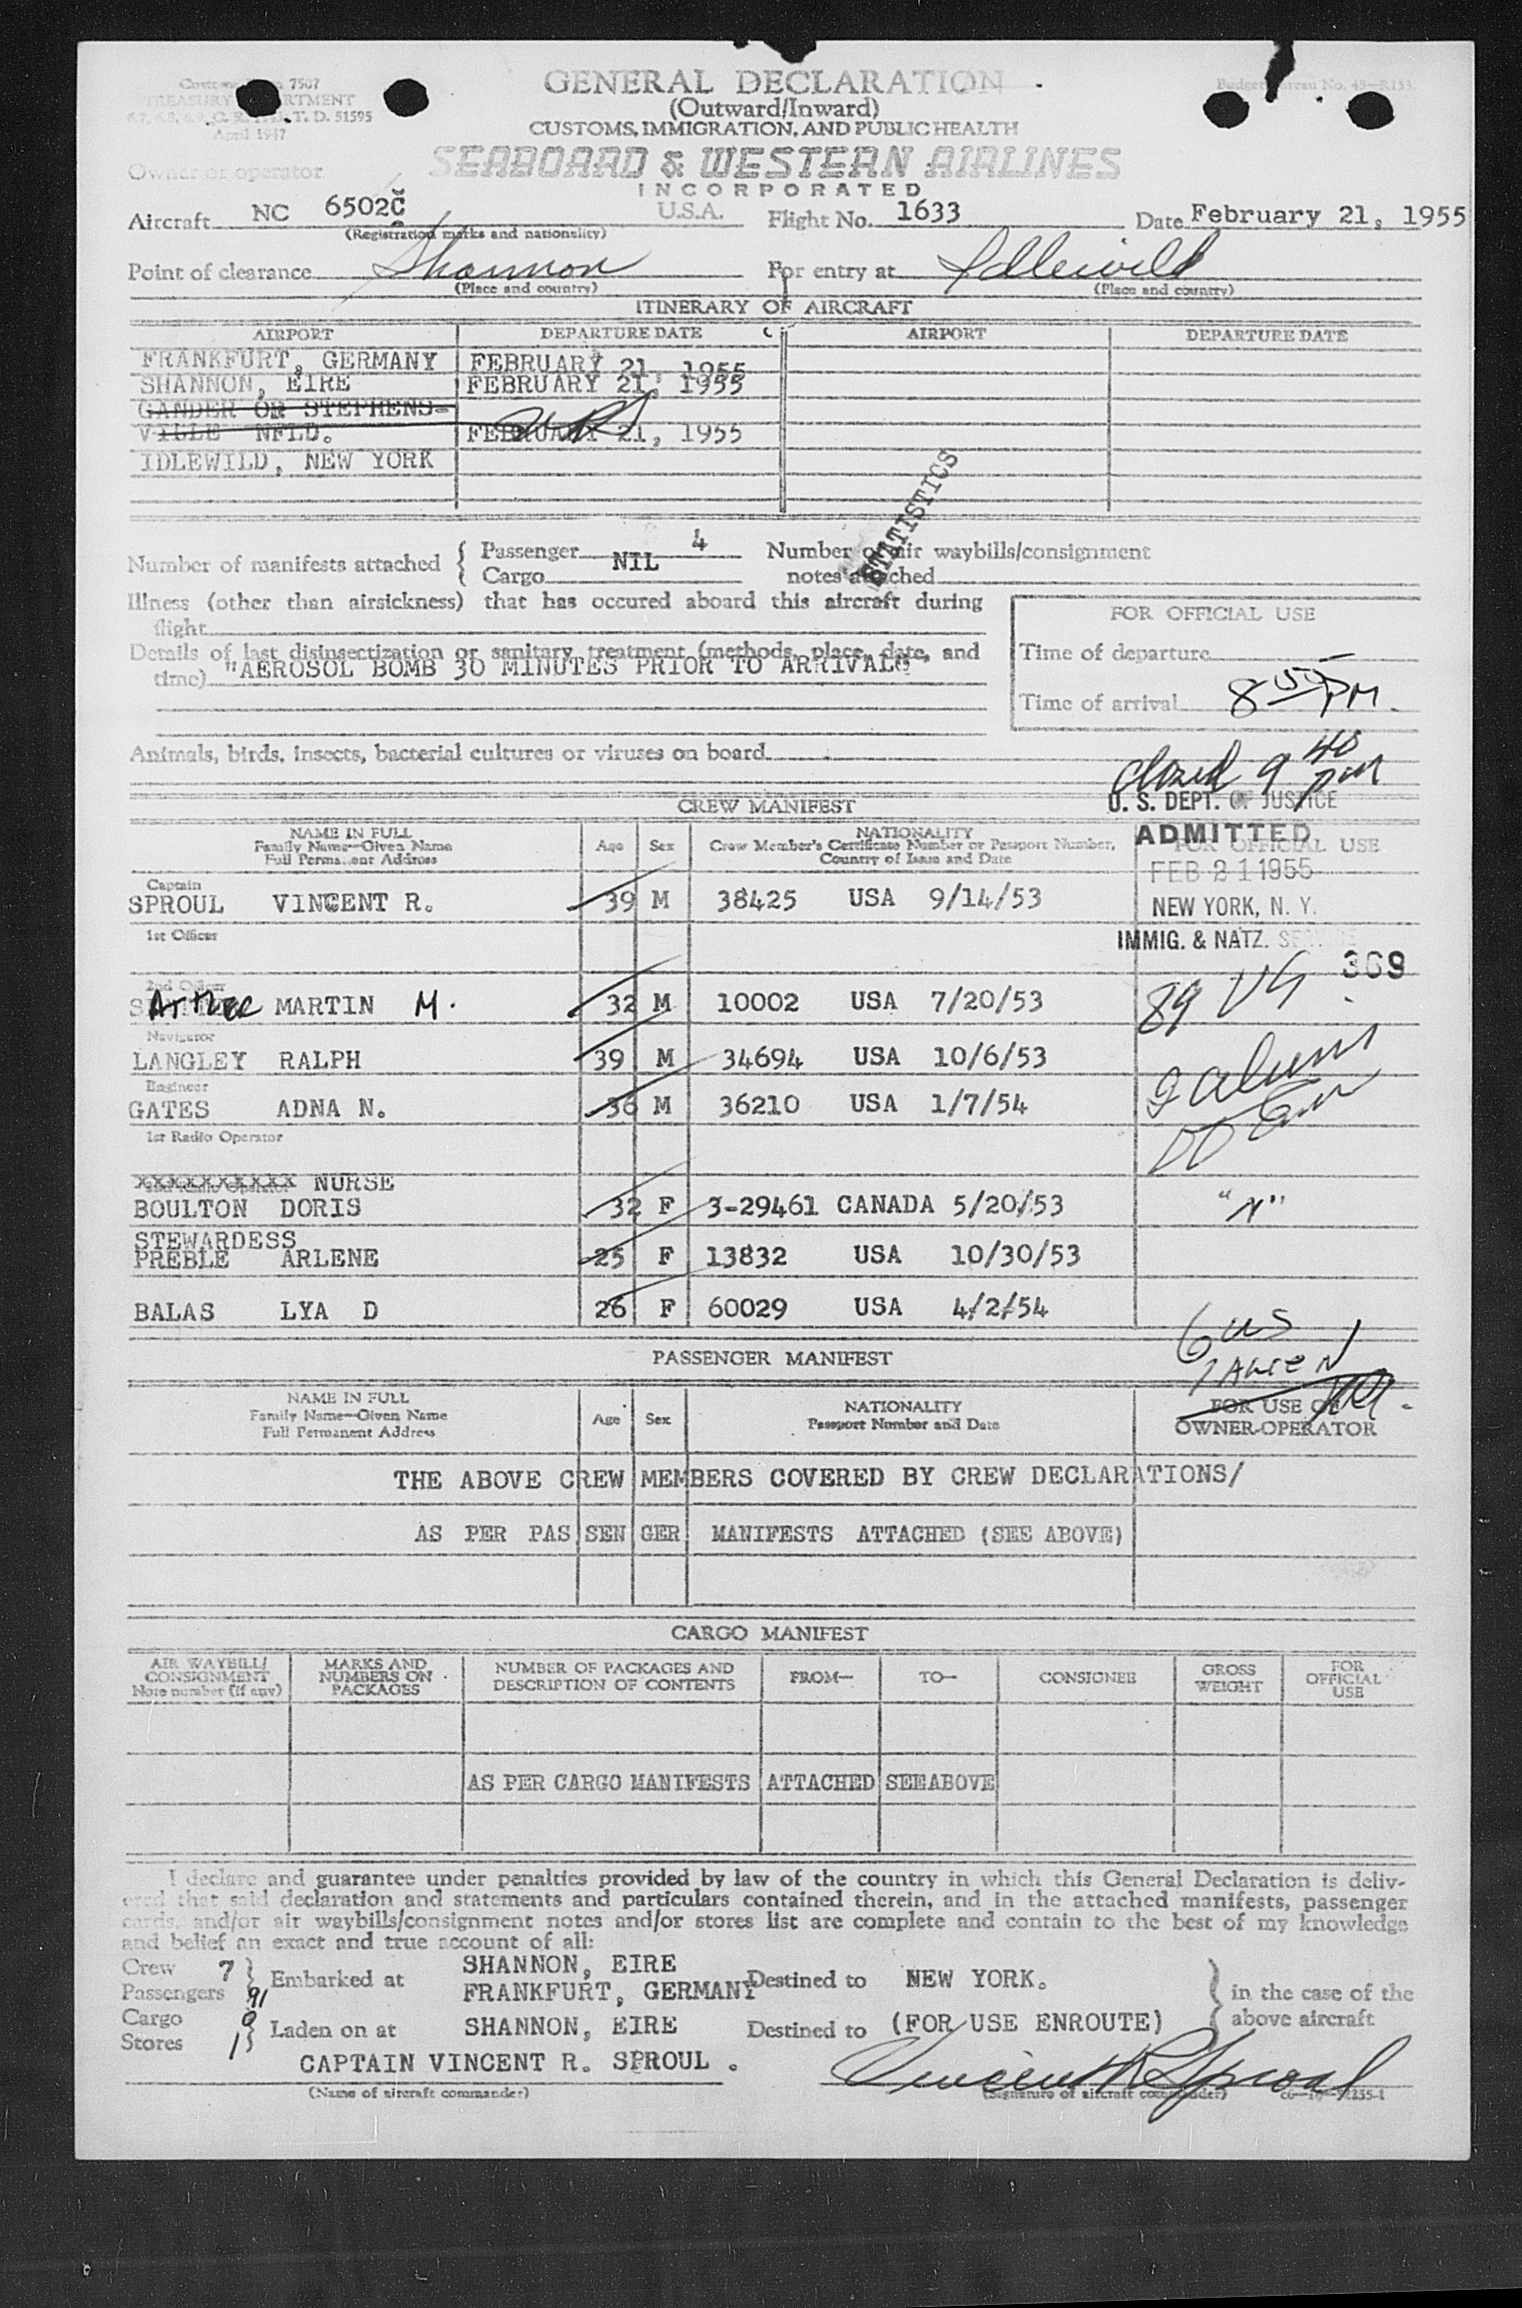 Customs Form 7507
TREASURY DEPARTMENT
T. D. 51595
April 1947
GENERAL DECLARATION
(Outward/Inward)
CUSTOMS, IMMIGRATION, AND PUBLIC HEALTH
Budget Bureau No. 43—R153
Owner or operator
SEABOARD & WESTERN AIRLINES
INCORPORATED
Aircraft NC 6502C U.S.A. Flight No. 1633 Date February 21, 1955
(Registration marks and nationality)
Point of clearance Shannon For entry at Idlewild
(Place and country) (Place and country)
ITINERARY OF AIRCRAFT
AIRPORT DEPARTURE DATE AIRPORT DEPARTURE DATE
FRANKFURT, GERMANY FEBRUARY 21, 1955
SHANNON, EIRE FEBRUARY 21, 1955
GANDER OR STEPHENS-
VILLE NFLD. FEBRUARY 21, 1955
IDLEWILD, NEW YORK
STATISTICS
Number of manifests attached { Passenger 4 Number of air waybills/consignment
Cargo NIL notes attached
Illness (other than airsickness) that has occured aboard this aircraft during
flight
Details of last disinsectization or sanitary treatment (methods, place, date, and
time) "AEROSOL BOMB 30 MINUTES PRIOR TO ARRIVAL"
FOR OFFICIAL USE
Time of departure
Time of arrival 8 PM.
Animals, birds, insects, bacterial cultures or viruses on board
closed 9 40 pm
CREW MANIFEST
U. S. DEPT. OF JUSTICE
ADMITTED
FEB 21 1955
NEW YORK, N. Y.
IMMIG. & NATZ. SERVICE
369
NAME IN FULL
Family Name—Given Name
Full Permanent Address
Age Sex
NATIONALITY
Crew Member's Certificate Number or Passport Number,
Country of Issue and Date
FOR OFFICIAL USE
Captain
SPROUL VINCENT R. 39 M 38425 USA 9/14/53
1st Officer
2nd Officer
MARTIN M. 32 M 10002 USA 7/20/53
89 US
Navigator
LANGLEY RALPH 39 M 34694 USA 10/6/53
2 aliens
Engineer
GATES ADNA N. 36 M 36210 USA 1/7/54
1st Radio Operator
XXXXXXXXXX NURSE
BOULTON DORIS 32 F 3-29461 CANADA 5/20/53
STEWARDESS
PREBLE ARLENE 25 F 13832 USA 10/30/53
BALAS LYA D 26 F 60029 USA 4/2/54
6 US
1 ALIEN
PASSENGER MANIFEST
NAME IN FULL
Family Name—Given Name
Full Permanent Address
Age Sex
NATIONALITY
Passport Number and Date
FOR USE OF
OWNER-OPERATOR
THE ABOVE CREW MEMBERS COVERED BY CREW DECLARATIONS/
AS PER PASSENGER MANIFESTS ATTACHED (SEE ABOVE)
CARGO MANIFEST
AIR WAYBILL/
CONSIGNMENT
Note number (if any)
MARKS AND
NUMBERS ON
PACKAGES
NUMBER OF PACKAGES AND
DESCRIPTION OF CONTENTS
FROM— TO— CONSIGNEE
GROSS
WEIGHT
FOR
OFFICIAL
USE
AS PER CARGO MANIFESTS ATTACHED SEE ABOVE
I declare and guarantee under penalties provided by law of the country in which this General Declaration is deliv-
ered that said declaration and statements and particulars contained therein, and in the attached manifests, passenger
cards, and/or air waybills/consignment notes and/or stores list are complete and contain to the best of my knowledge
and belief an exact and true account of all:
Crew 7
Passengers 91
} Embarked at SHANNON, EIRE
FRANKFURT, GERMANY Destined to NEW YORK.
in the case of the
above aircraft
Cargo 0
Stores 1
} Laden on at SHANNON, EIRE Destined to (FOR USE ENROUTE)
CAPTAIN VINCENT R. SPROUL . Vincent R Sproul
(Name of aircraft commander) (Signature of aircraft commander)